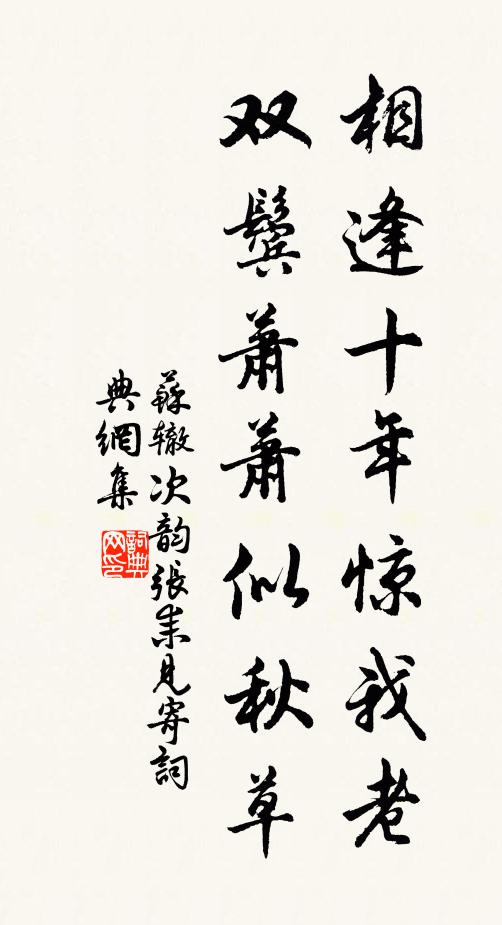 相逢十年惊我老
双鬓萧萧似秋草
蘇辙次韵張耒見寄詞
典網集
詞典网印